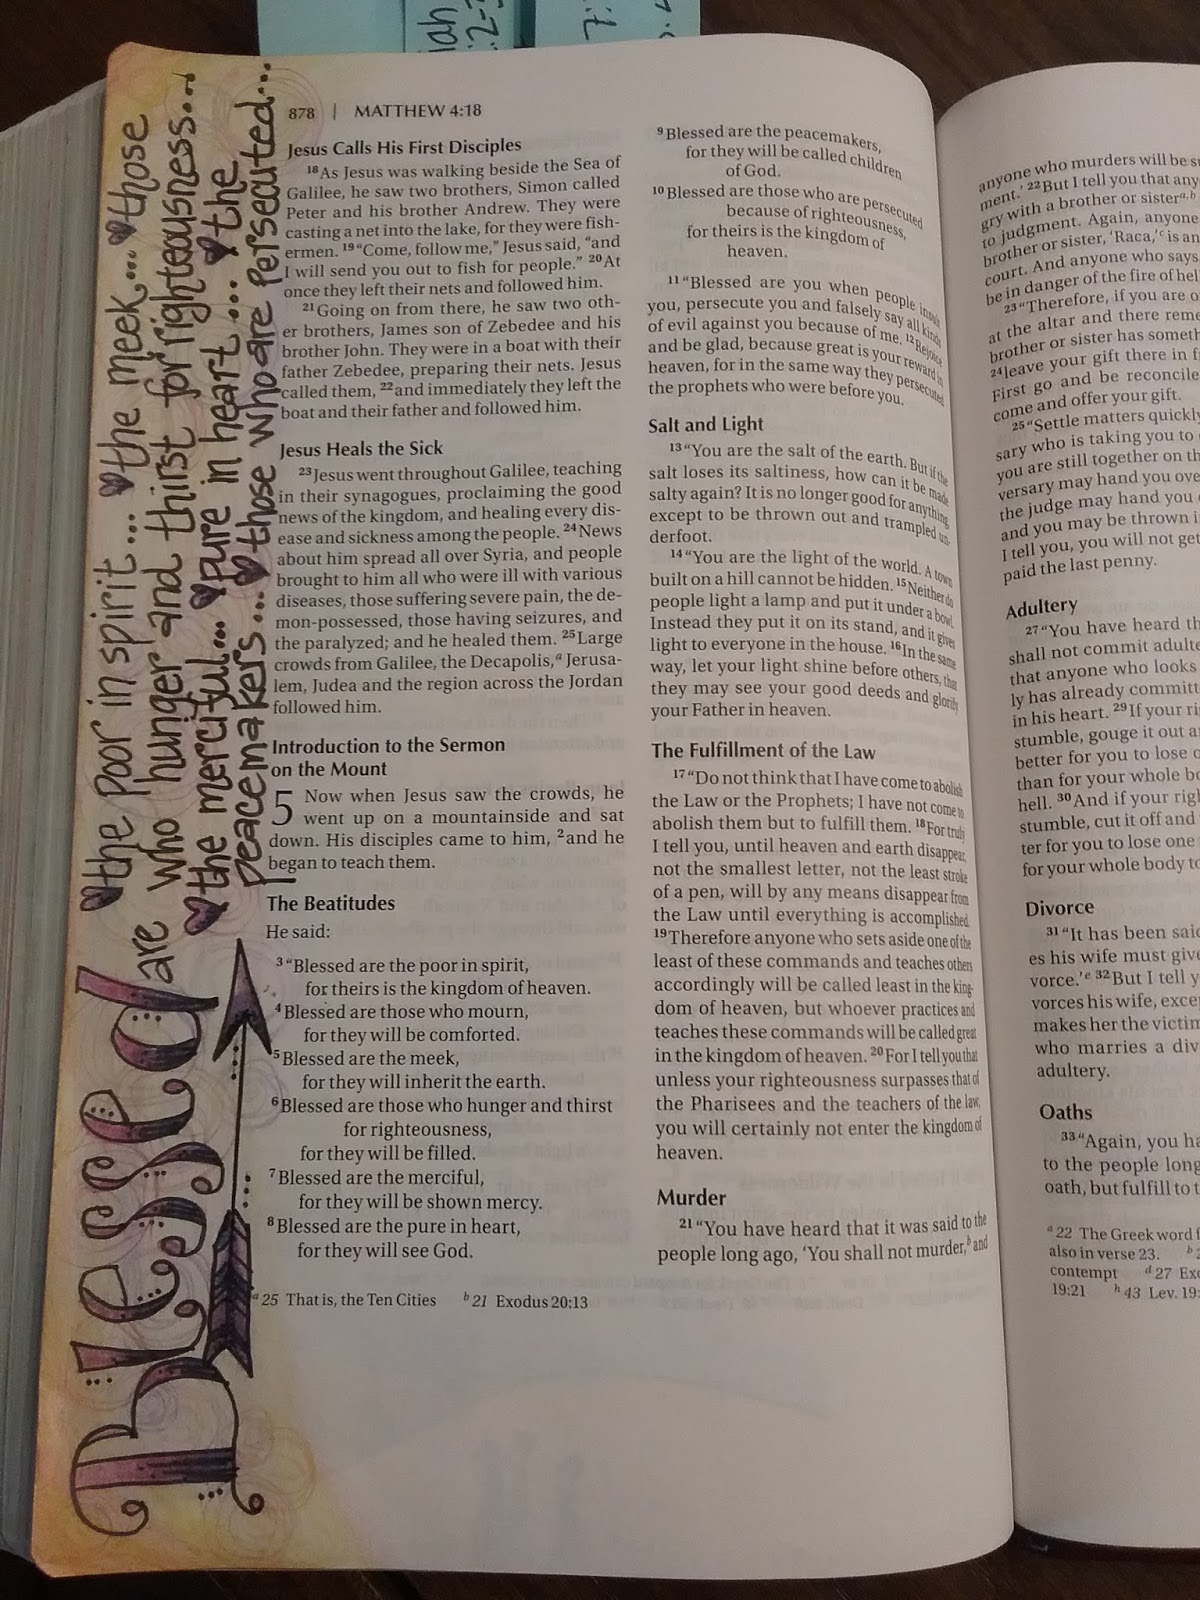 iah
:2-3
7:
Blessed are
♥the poor in spirit... ♥the meek... ♥those
who hunger and thirst for righteousness...
♥the merciful... ♥pure in heart... ♥the
peacemakers... ♥those who are persecuted...
878 | MATTHEW 4:18
Jesus Calls His First Disciples
18As Jesus was walking beside the Sea of
Galilee, he saw two brothers, Simon called
Peter and his brother Andrew. They were
casting a net into the lake, for they were fish-
ermen. 19“Come, follow me,” Jesus said, “and
I will send you out to fish for people.” 20At
once they left their nets and followed him.
21Going on from there, he saw two oth-
er brothers, James son of Zebedee and his
brother John. They were in a boat with their
father Zebedee, preparing their nets. Jesus
called them, 22and immediately they left the
boat and their father and followed him.
Jesus Heals the Sick
23Jesus went throughout Galilee, teaching
in their synagogues, proclaiming the good
news of the kingdom, and healing every dis-
ease and sickness among the people. 24News
about him spread all over Syria, and people
brought to him all who were ill with various
diseases, those suffering severe pain, the de-
mon-possessed, those having seizures, and
the paralyzed; and he healed them. 25Large
crowds from Galilee, the Decapolis,a Jerusa-
lem, Judea and the region across the Jordan
followed him.
Introduction to the Sermon
on the Mount
5 Now when Jesus saw the crowds, he
went up on a mountainside and sat
down. His disciples came to him, 2and he
began to teach them.
The Beatitudes
He said:
3“Blessed are the poor in spirit,
for theirs is the kingdom of heaven.
4Blessed are those who mourn,
for they will be comforted.
5Blessed are the meek,
for they will inherit the earth.
6Blessed are those who hunger and thirst
for righteousness,
for they will be filled.
7Blessed are the merciful,
for they will be shown mercy.
8Blessed are the pure in heart,
for they will see God.
9Blessed are the peacemakers,
for they will be called children
of God.
10Blessed are those who are persecuted
because of righteousness,
for theirs is the kingdom of
heaven.
11“Blessed are you when people insult
you, persecute you and falsely say all kinds
of evil against you because of me. 12Rejoice
and be glad, because great is your reward in
heaven, for in the same way they persecuted
the prophets who were before you.
Salt and Light
13“You are the salt of the earth. But if the
salt loses its saltiness, how can it be made
salty again? It is no longer good for anything,
except to be thrown out and trampled un-
derfoot.
14“You are the light of the world. A town
built on a hill cannot be hidden. 15Neither do
people light a lamp and put it under a bowl.
Instead they put it on its stand, and it gives
light to everyone in the house. 16In the same
way, let your light shine before others, that
they may see your good deeds and glorify
your Father in heaven.
The Fulfillment of the Law
17“Do not think that I have come to abolish
the Law or the Prophets; I have not come to
abolish them but to fulfill them. 18For truly
I tell you, until heaven and earth disappear,
not the smallest letter, not the least stroke
of a pen, will by any means disappear from
the Law until everything is accomplished.
19Therefore anyone who sets aside one of the
least of these commands and teaches others
accordingly will be called least in the king-
dom of heaven, but whoever practices and
teaches these commands will be called great
in the kingdom of heaven. 20For I tell you that
unless your righteousness surpasses that of
the Pharisees and the teachers of the law,
you will certainly not enter the kingdom of
heaven.
Murder
21“You have heard that it was said to the
people long ago, ‘You shall not murder,b and
a 25 That is, the Ten Cities b 21 Exodus 20:13
anyone who murders will be su
ment.’ 22But I tell you that any
gry with a brother or sistera,b
to judgment. Again, anyone
brother or sister, ‘Raca,’c is an
court. And anyone who says,
be in danger of the fire of hell
23“Therefore, if you are o
at the altar and there reme
brother or sister has someth
24leave your gift there in f
First go and be reconcile
come and offer your gift.
25“Settle matters quickly
sary who is taking you to
you are still together on th
versary may hand you ove
the judge may hand you
and you may be thrown i
I tell you, you will not get
paid the last penny.
Adultery
27“You have heard th
shall not commit adulte
that anyone who looks
ly has already committ
in his heart. 29If your ri
stumble, gouge it out a
better for you to lose o
than for your whole bo
hell. 30And if your righ
stumble, cut it off and
ter for you to lose one
for your whole body to
Divorce
31“It has been said
es his wife must give
vorce.’e 32But I tell y
vorces his wife, exce
makes her the victim
who marries a div
adultery.
Oaths
33“Again, you ha
to the people long
oath, but fulfill to t
a 22 The Greek word f
also in verse 23. b 2
contempt d 27 Exo
19:21 h 43 Lev. 19: